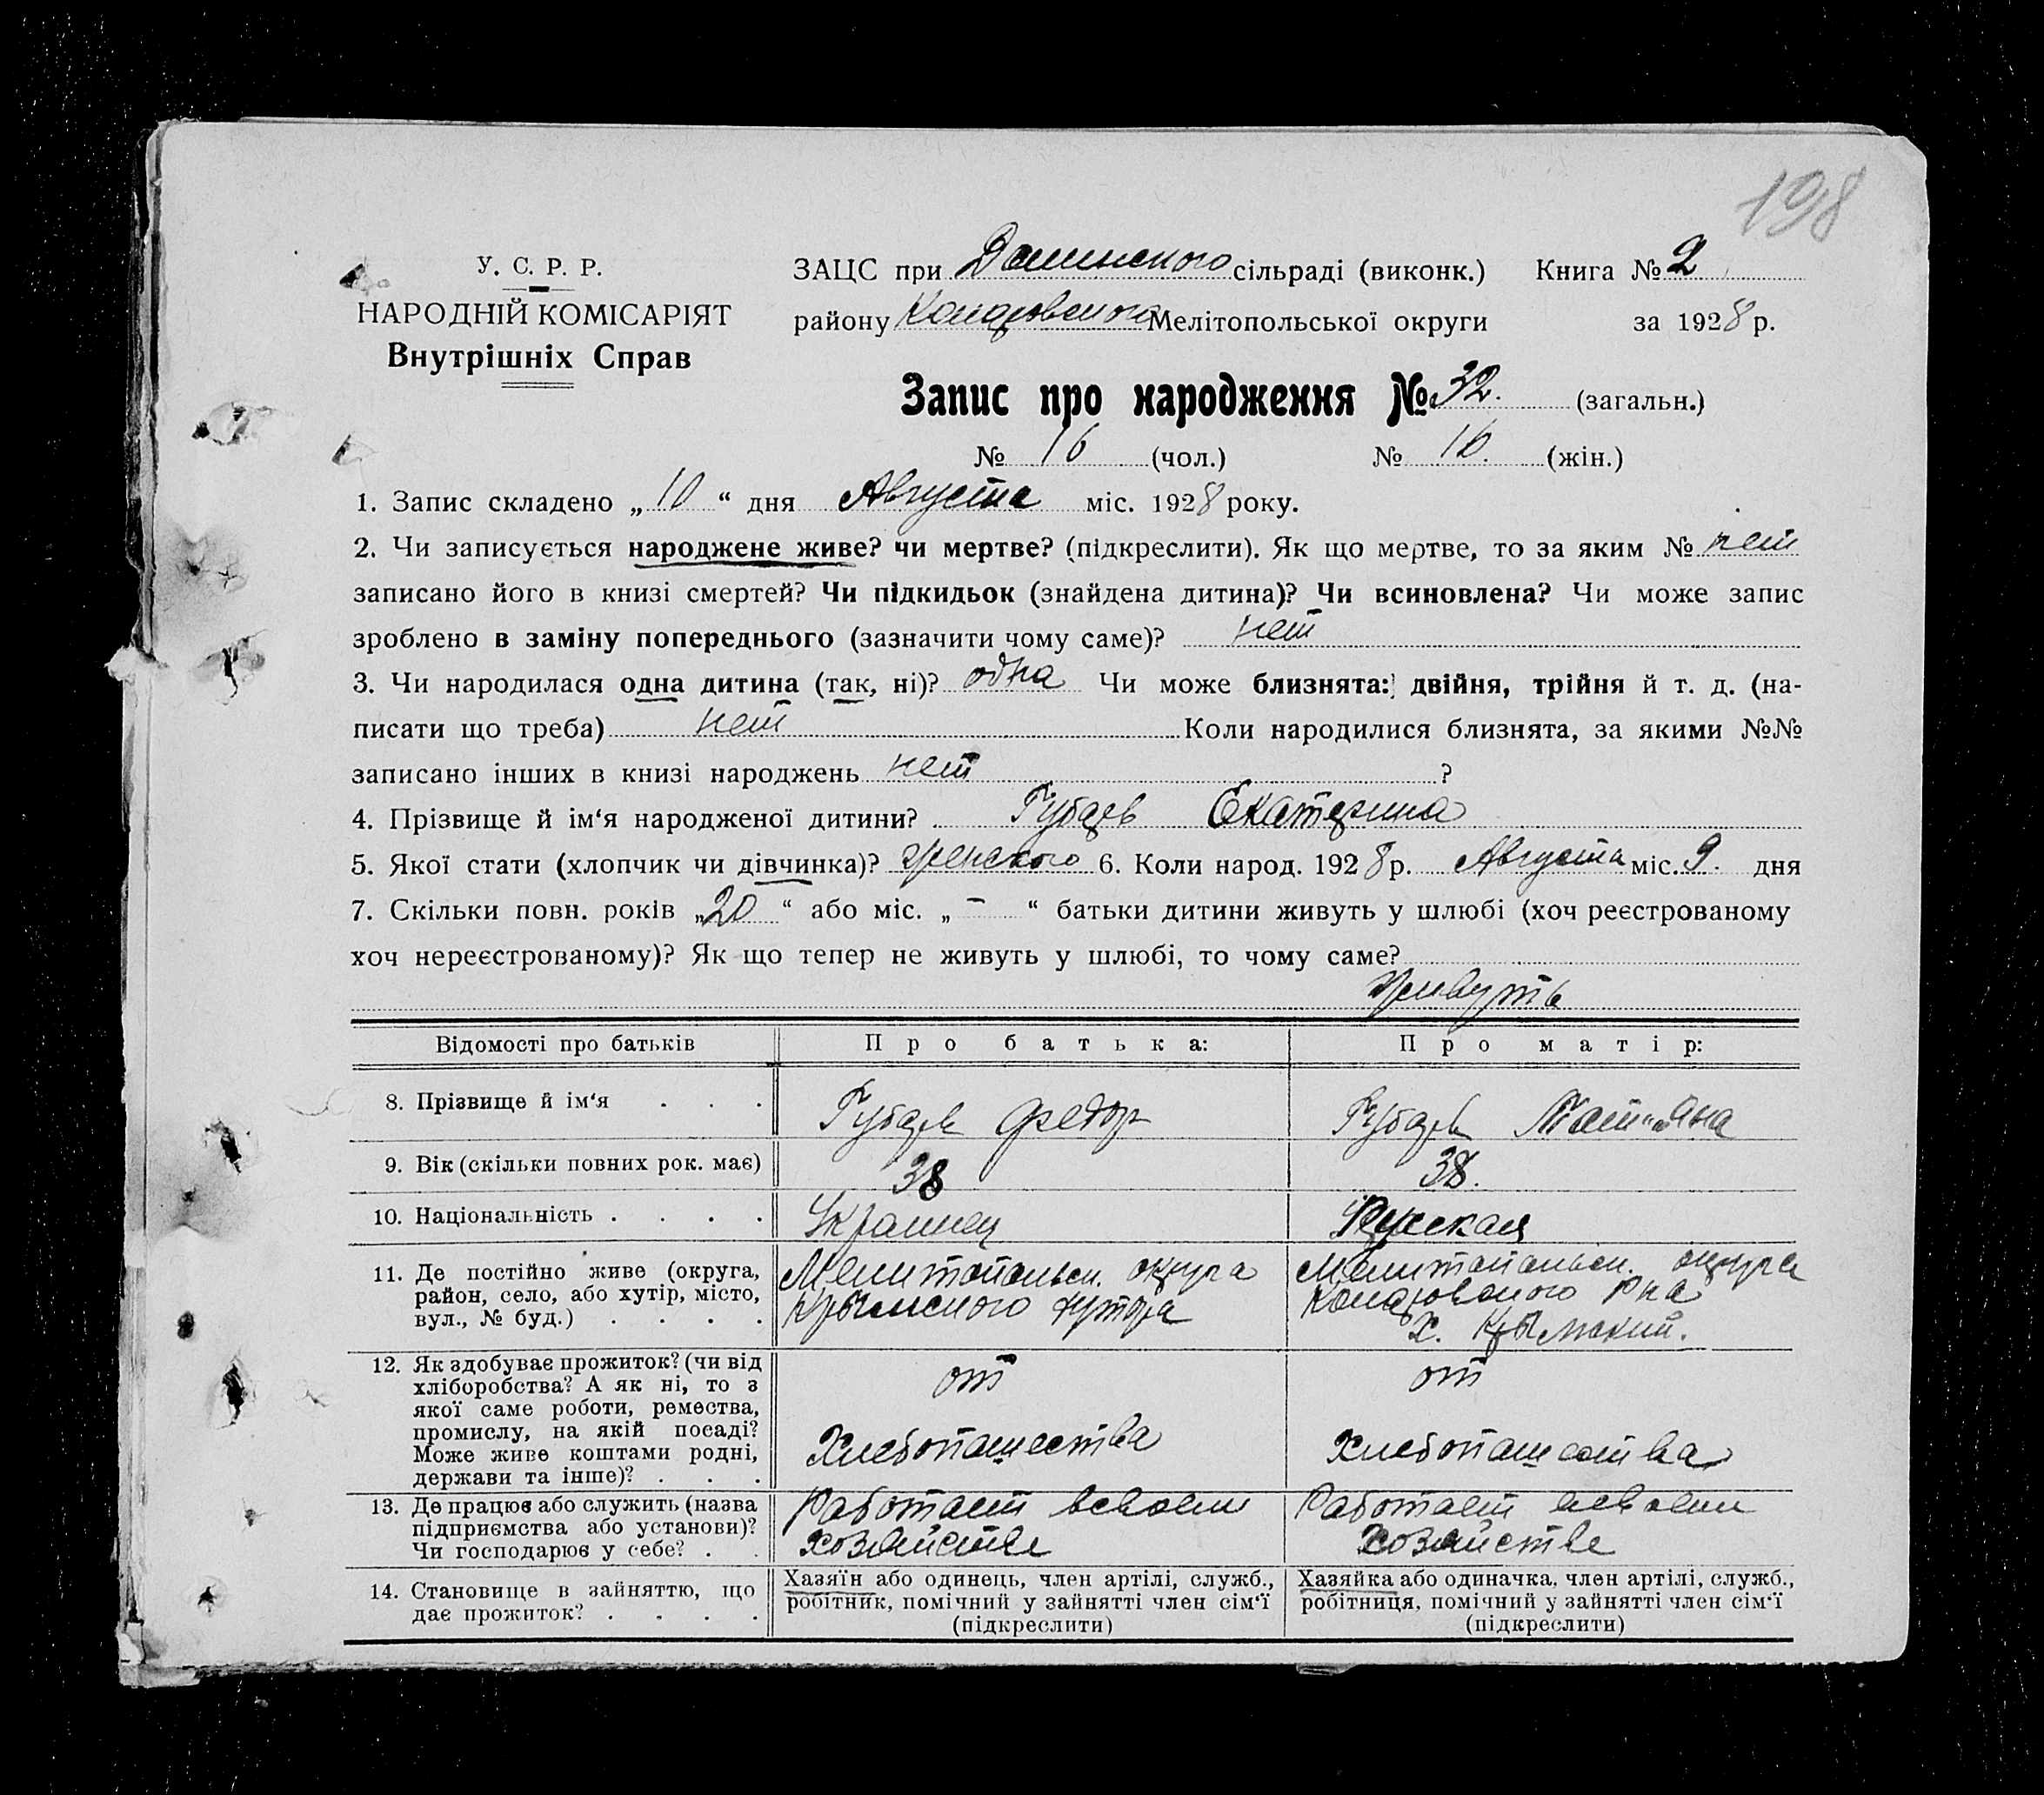 198
У. С. Р. Р.
НАРОДНІЙ КОМІСАРІЯТ
Внутрішніх Справ
ЗАЦС при сільраді (виконк.) Книга № 2
району Мелітопольської округи за 1928 р.
Запис про народження № 32. (загальн.)
№ 16 (чол.) № 16. (жін.)
1. Запис складено „ 10 “ дня Августа міс. 1928 року.
2. Чи записується народжене живе? чи мертве? (підкреслити). Як що мертве, то за яким № нет
записано його в книзі смертей? Чи підкидьок (знайдена дитина)? Чи всиновлена? Чи може запис
зроблено в заміну попереднього (зазначити чому саме)? нет
3. Чи народилася одна дитина (так, ні)? одна Чи може близнята: двійня, трійня й т. д. (на-
писати що треба) нет Коли народилися близнята, за якими №№
записано інших в книзі народжень нет ?
4. Прізвище й ім‘я народженої дитини? Губарь Екатерина
5. Якої стати (хлопчик чи дівчинка)? женского 6. Коли народ. 1928 р. Августа міс. 9. дня
7. Скільки повн. років „ 20 “ або міс. „ - “ батьки дитини живуть у шлюбі (хоч реєстрованому
хоч нереєстрованому)? Як що тепер не живуть у шлюбі, то чому саме?
живуть
Відомості про батьків Про батька: Про матір:
8. Прізвище й ім‘я . . . Губарь Федор Губарь Татьяна
9. Вік (скільки повних рок. має) 38 38.
10. Національність . . . . Украинец Русская
11. Де постійно живе (округа,
район, село, або хутір, місто,
вул., № буд.) . . . .
Мелитопольск. округа
Крымского хутора
Мелитопольск. округа
Рна
Х. Крымский.
12. Як здобуває прожиток? (чи від
хліборобства? А як ні, то з
якої саме роботи, ремества,
промислу, на якій посаді?
Може живе коштами родні,
держави та інше)? . . .
от
Хлебопашества
от
Хлебопашества
13. Де працює або служить (назва
підприємства або установи)?
Чи господарює у себе? . .
Работает всвоем
хозяйстве
Работает всвоем
хозяйстве
14. Становище в зайняттю, що
дає прожиток? . . . .
Хазяїн або одинець, член артілі, служб.,
робітник, помічний у зайнятті член сім‘ї
(підкреслити)
Хазяйка або одиначка, член артілі, служб.,
робітниця, помічний у зайнятті член сім‘ї
(підкреслити)